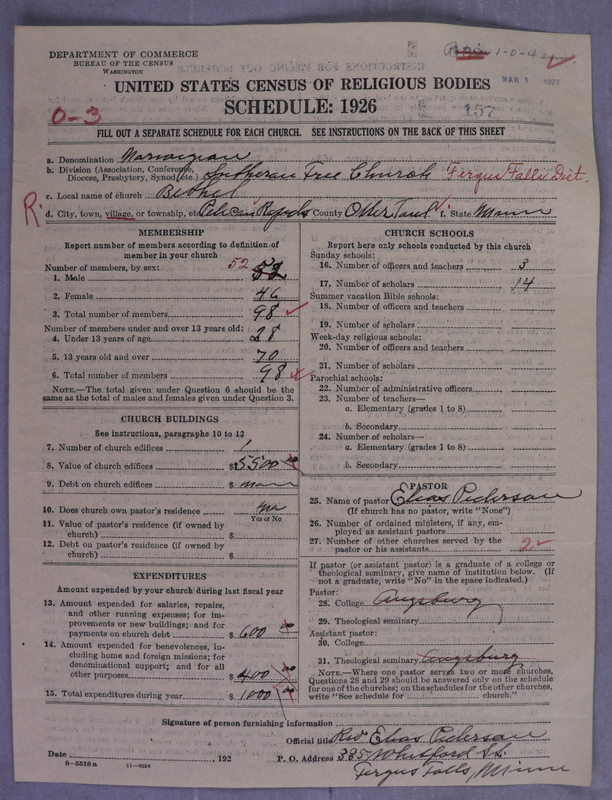 DEPARTMENT OF COMMERCE
BUREAU OF THE CENSUS
WASHINGTON
1-0-4
MAR 1 1927
UNITED STATES CENSUS OF RELIGIOUS BODIES
SCHEDULE: 1926
0-3
157
FILL OUT A SEPARATE SCHEDULE FOR EACH CHURCH. SEE INSTRUCTIONS ON THE BACK OF THIS SHEET
a. Denomination Norwegian
b. Division (Association, Conference, Diocese, Presbytery, Synod, etc.) Lutheran Free Church Fergus Falls Dist.
c. Local name of church Bethel
R. d. City, town, village, or township, etc. Pelican Rapids County Otter Tail f. State Minn
MEMBERSHIP
Report number of members according to definition of
member in your church
Number of members, by sex:
1. Male 52 52
2. Female 46
3. Total number of members 98
Number of members under and over 13 years old:
4. Under 13 years of age 28
5. 13 years old and over 70
6. Total number of members 98
NOTE.—The total given under Question 6 should be
same as the total of males and females given under Question 3.
CHURCH BUILDINGS
See instructions, paragraphs 10 to 12
7. Number of church edifices 1
8. Value of church edifices $ 5500 00
9. Debt on church edifices $ none
10. Does church own pastor's residence? no
Yes or No
11. Value of pastor's residence (if owned by
church) $
12. Debt on pastor's residence (if owned by
church) $
EXPENDITURES
Amount expended by your church during last fiscal year
13. Amount expended for salaries, repairs,
and other running expenses; for im-
provements or new buildings; and for
payments on church debt $ 600 00
14. Amount expended for benevolences, in-
cluding home and foreign missions; for
denominational support; and for all
other purposes $ 400 00
15. Total expenditures during year $ 1000 00
CHURCH SCHOOLS
Report here only schools conducted by this church
Sunday schools:
16. Number of officers and teachers 3
17. Number of scholars 14
Summer vacation Bible schools:
18. Number of officers and teachers
19. Number of scholars
Week-day religious schools:
20. Number of officers and teachers
21. Number of scholars
Parochial schools:
22. Number of administrative officers
23. Number of teachers—
a. Elementary (grades 1 to 8)
b. Secondary
24. Number of scholars—
a. Elementary (grades 1 to 8)
b. Secondary
PASTOR
25. Name of pastor Elias Pederson
(If church has no pastor, write "None")
26. Number of ordained ministers, if any, em-
ployed as assistant pastors
27. Number of other churches served by the
pastor or his assistants 2
If pastor (or assistant pastor) is a graduate of a college or
theological seminary, give name of institution below. (If
not a graduate, write "No" in the space indicated.)
Pastor:
28. College Augsburg
29. Theological seminary
Assistant pastor:
30. College
31. Theological seminary Augsburg
NOTE.—Where one pastor serves two or more churches,
Questions 28 and 29 should be answered only on the schedule
for one of the churches; on the schedules for the other churches,
write "See schedule for church."
Signature of person furnishing information
Official title Rev Elias Pederson
Date , 192 P. O. Address 335 Whitford St.
Fergus Falls, Minn
8-5518 a 11-9554